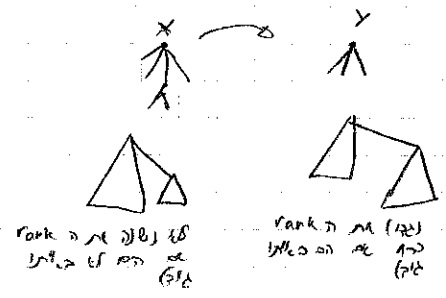 X
Y
לא נשנה את ה rank
אם הם לא באותו
גובה
נגדיל את ה rank
רק אם הם באותו
גובה